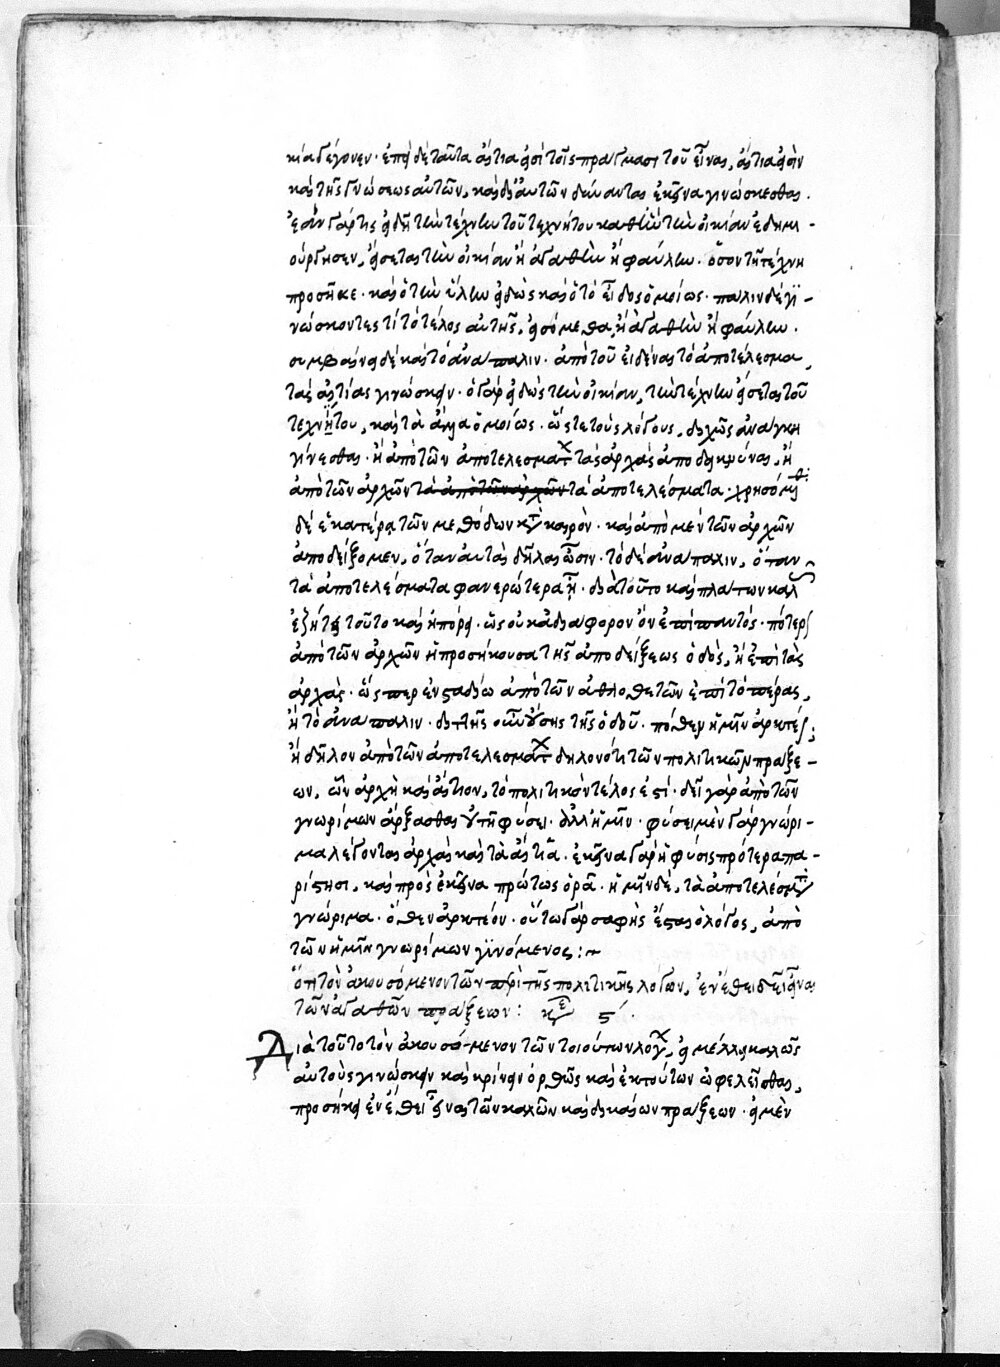 κία γέγονεν· ἐπεὶ δὲ ταῦτα αἴτιά ἐστι τοῖς πράγμασι τοῦ εἶναι, αἴτια ἂν εἴη
καὶ τῆς γνώσεως αὐτῶν, καὶ δι' αὐτῶν δύναται ἐκεῖνα γινώσκεσθαι.
ἐὰν γάρ τις εἰδῇ τὴν τέχνην τοῦ τεχνίτου καθ' ἣν τὴν οἰκίαν ἐδημι-
ούργησεν, εἴσεται τὴν οἰκίαν ἢ ἀγαθὴν ἢ φαύλην· ὅσον τῇ τέχνῃ
προσῆκε· καὶ ὁ τὴν ὕλην εἰδὼς καὶ ὁ τὸ εἶδος ὁμοίως· πάλιν δὲ γι-
νώσκοντες τί τὸ τέλος αὐτῆς, εἰσόμεθα ἢ ἀγαθὴν ἢ φαύλην.
συμβαίνει δὲ καὶ τὸ ἀνάπαλιν· ἀπὸ τοῦ εἰδέναι τὸ ἀποτέλεσμα,
τὰς αἰτίας γινώσκειν· ὁ γὰρ εἰδὼς τὴν οἰκίαν, τὴν τέχνην εἴσεται τοῦ
τεχνίτου, καὶ τὰ ἄλλα ὁμοίως· ὥστε τοὺς λόγους, διχῶς ἀνάγκη
γίνεσθαι· ἢ ἀπὸ τῶν ἀποτελεσμάτ τὰς ἀρχὰς ἀποδεικνύναι, ἢ
ἀπὸ τῶν ἀρχῶν τὰ ἀπὸ τῶν ἀρχῶν τὰ ἀποτελέσματα· χρησόμεθ
δὲ ἑκατέρᾳ τῶν μεθόδων κατὰ καιρὸν· καὶ ἀπὸ μὲν τῶν ἀρχῶν
ἀποδείξομεν, ὅταν αὐταὶ δῆλαι ὦσιν· τὸ δὲ ἀνάπαλιν, ὅταν
τὰ ἀποτελέσματα φανερώτερα ᾖ· διὰ τοῦτο καὶ πλάτων καλῶς
ἐζήτει τοῦτο καὶ ἠπόρει· ὡς οὐκ ἀδιάφορον ὂν ἐπὶ παντός· πότερον
ἀπὸ τῶν ἀρχῶν ἡ προσήκουσα τῆς ἀποδείξεως ὁδὸς, ἢ ἐπὶ τὰς
ἀρχάς· ὥσπερ ἐν σταδίῳ ἀπὸ τῶν ἀθλοθετῶν ἐπὶ τὸ πέρας,
ἢ τὸ ἀνάπαλιν· διττῆς οὖν οὔσης τῆς ὁδοῦ· πόθεν ἡμῖν ἀρκτέον;
ἢ δῆλον ἀπὸ τῶν ἀποτελεσμάτ δηλονότι τῶν πολιτικῶν πράξε-
ων, ὧν ἀρχὴ καὶ αἴτιον, τὸ πολιτικὸν τέλος ἐστί· δεῖ γὰρ ἀπὸ τῶν
γνωρίμων ἄρξασθαι οὐ τῇ φύσει· ἀλλ' ἡμῖν· φύσει μὲν γὰρ γνώρι-
μα λέγονται ἀρχαὶ καὶ τὰ αἴτια· ἐκεῖνα γὰρ ἡ φύσις πρότερα πα-
ρίστησι, καὶ πρὸς ἐκεῖνα πρώτως ὁρᾷ· ἡμῖν δὲ, τὰ ἀποτελέσματα
γνώριμα· ὅθεν ἀρκτέον· οὕτω γὰρ σαφὴς ἔσται ὁ λόγος, ἀπὸ
τῶν ἡμῖν γνωρίμων γινόμενος:~
ὅτι τὸν ἀκουσόμενον τῶν περὶ τῆς πολιτικῆς λόγων, ἐν ἔθει δεῖ εἶναι
τῶν ἀγαθῶν πράξεων: κεφ ϛ.
Διὰ τοῦτο τὸν ἀκουσόμενον τῶν τοιούτων λόγ, εἰ μέλλει καλῶς
αὐτοὺς γινώσκειν καὶ κρίνειν ὀρθῶς καὶ ἐκ τούτων ὠφελεῖσθαι,
προσήκει ἐν ἔθει εἶναι τῶν καλῶν καὶ δικαίων πράξεων· εἰ μὲν